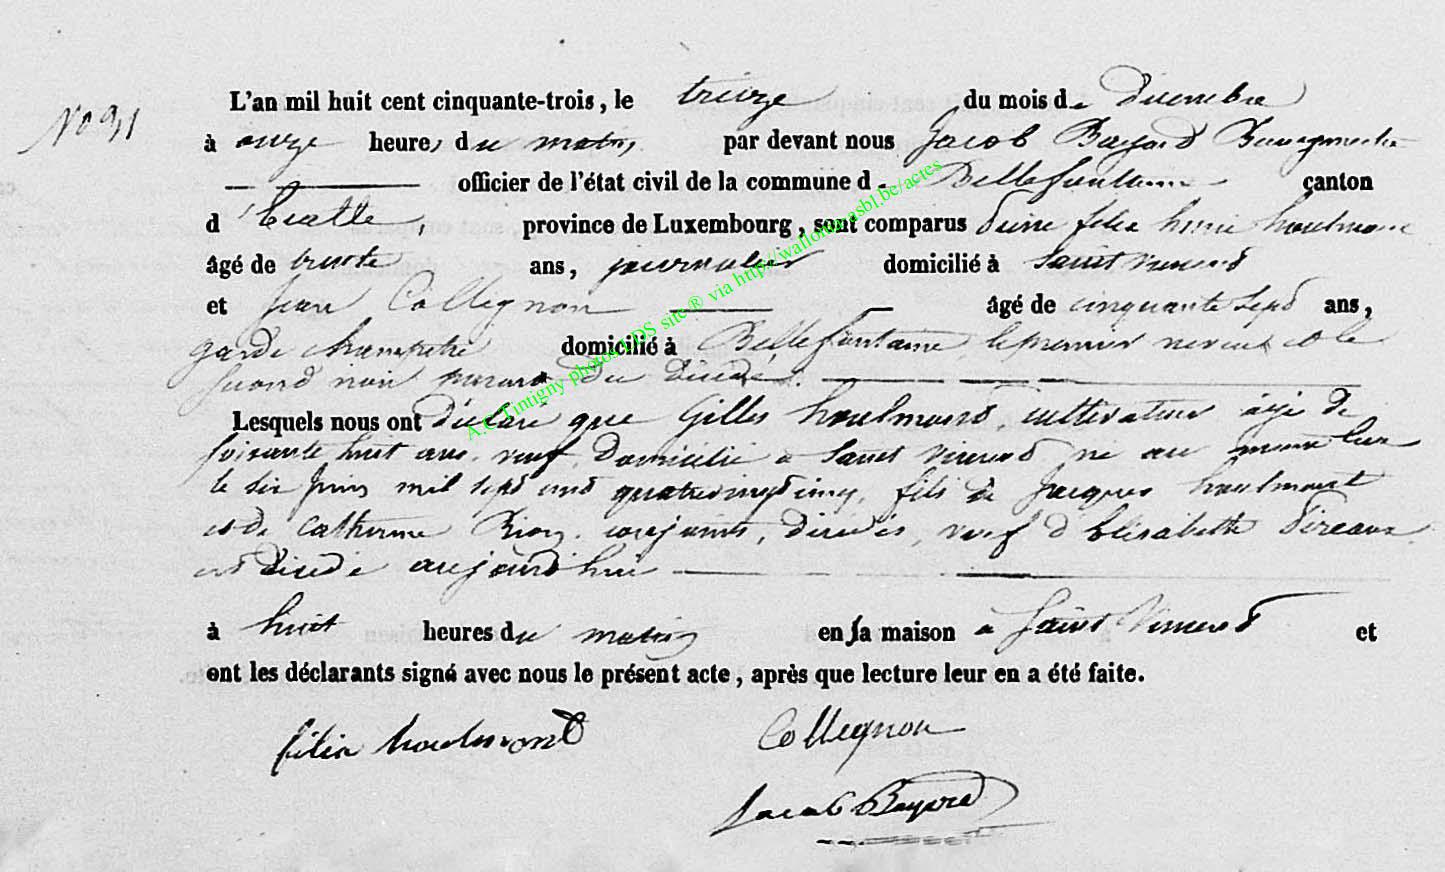 No 91
L'an mil huit cent cinquante-trois, le treize du mois de decembre
à onze heures du matin par devant nous Jacob Bayard Bourgmestre
officier de l'état civil de la commune de Bellefontaine canton
d'Etalle, province de Luxembourg, sont comparus félix houlmont
âgé de trente ans, journalier domicilié à Saint Vincent
et Jean Collignon âgé de cinquante sept ans,
garde champetre domicilié à Bellefontaine le premier neveu et le
second non parent du décédé.
Lesquels nous ont déclaré que Gilles houlmont, cultivateur âgé de
soixante huit ans, veuf, domicilié à Saint Vincent né au meme lieu
le six juin mil sept cent quatrevingt cinq, fils de Jacques houlmont
et de Catherine conjoints, décédés, veuf d'Elisabeth
est décédé aujourd'hui
à huit heures du matin en sa maison à Saint Vincent et
ont les déclarants signé avec nous le présent acte, après que lecture leur en a été faite.
félix houlmont Collignon
Jacob Bayard
A.C. Tintigny photos LDS site® via http://wallonia-asbl.be/actes